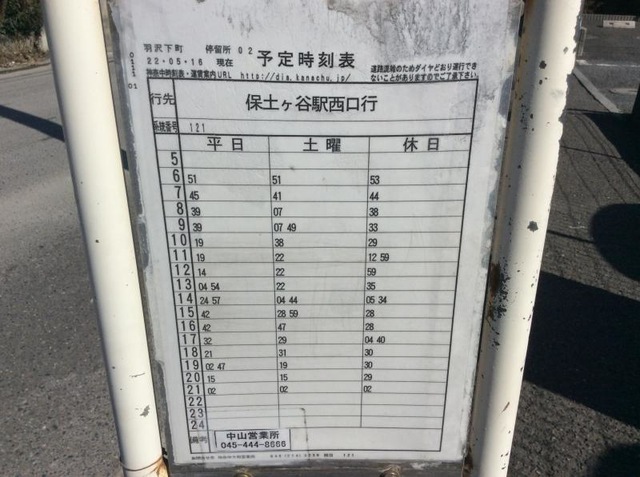 羽沢下町 停留所 02
22-05-16 現在
予定時刻表
神奈中時刻表・運賃案内URL http://dia.kanachu.jp/
道路混雑のためダイヤどおり運行でき
ないことがありますのでご了承下さい。
行先 保土ヶ谷駅西口行
系統番号 121
平日 土曜 休日
5
6 51 51 53
7 45 41 44
8 39 07 38
9 39 07 49 33
10 19 38 29
11 19 22 12 59
12 14 22 59
13 04 54 22 35
14 24 57 04 44 05 34
15 42 28 59 28
16 42 47 28
17 32 29 04 40
18 21 31 30
19 02 47 19 30
20 15 15 29
21 02 02 02
22
23
24
備考 中山営業所
045-444-8666